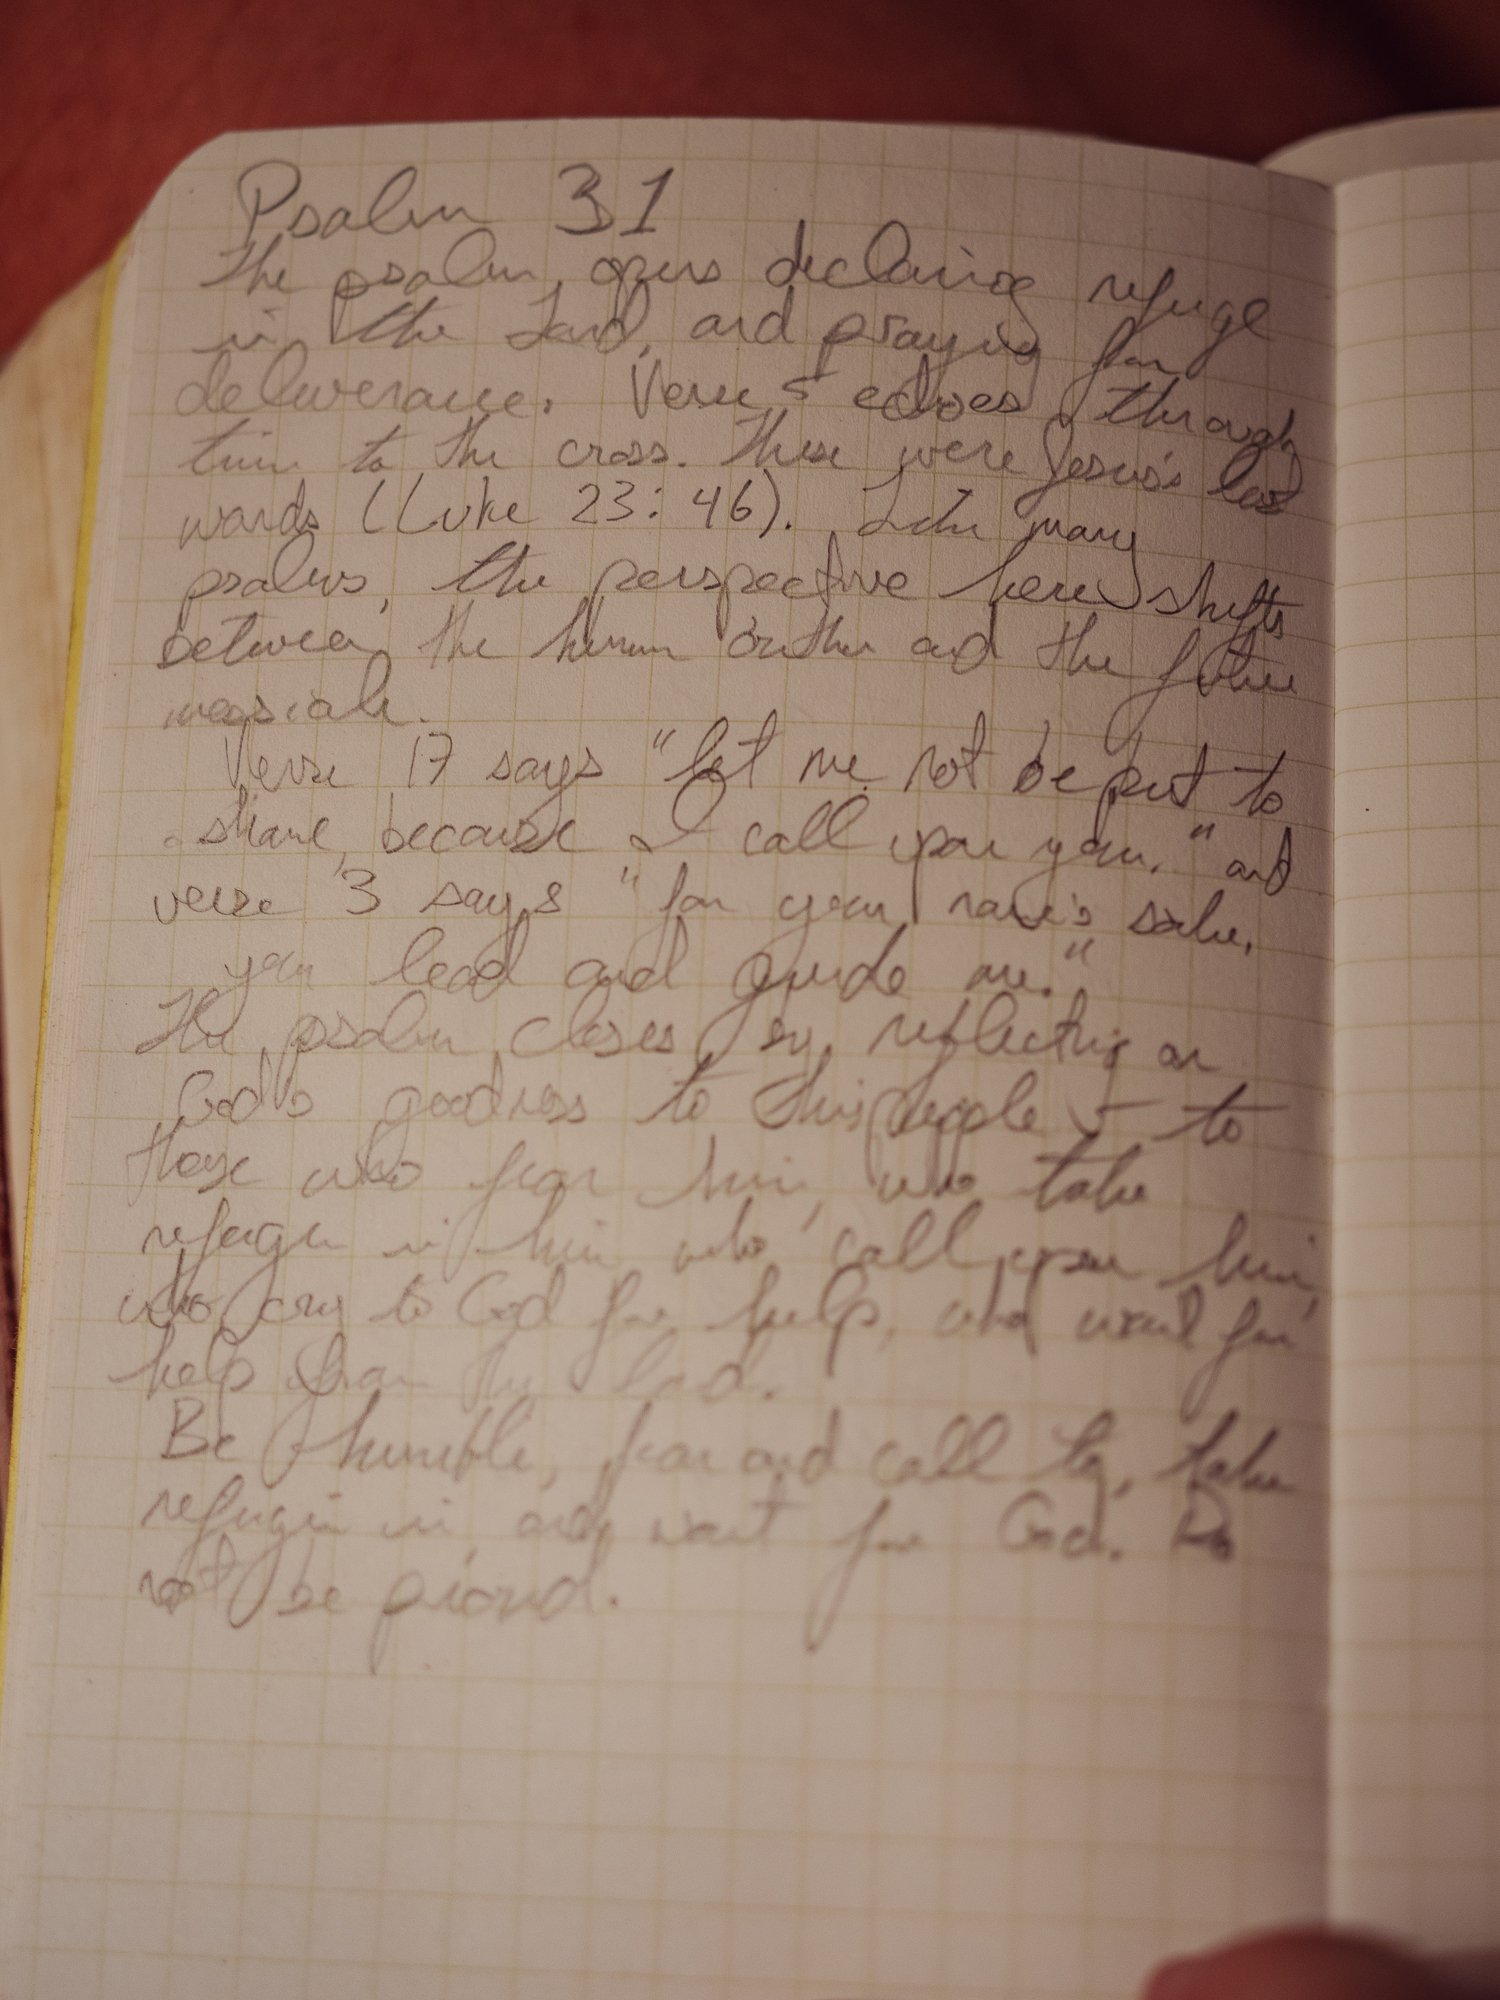 Psalm 31
The psalm opens declaring refuge
in the Lord, and praying for
deliverance. Verse 5 echoes through
time to the cross. These were Jesus's last
words (Luke 23:46). Like many
psalms, the perspective here shifts
between the human author and the future
messiah.
Verse 17 says "let me not be put to
shame, because I call upon you." and
verse 3 says "for your name's sake,
you lead and guide me."
The psalm closes by reflecting on
God's goodness to his people - to
those who fear him, who take
refuge in him, who call upon him,
who cry to God for help, who wait for
help from the Lord.
Be humble, fear and call to, take
refuge in, and wait for God. Do
not be proud.